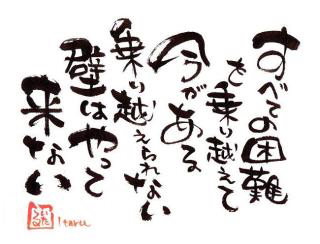 すべての困難
を乗り越えて
今がある
乗り越えられない
壁はやって
来ない
Itaru